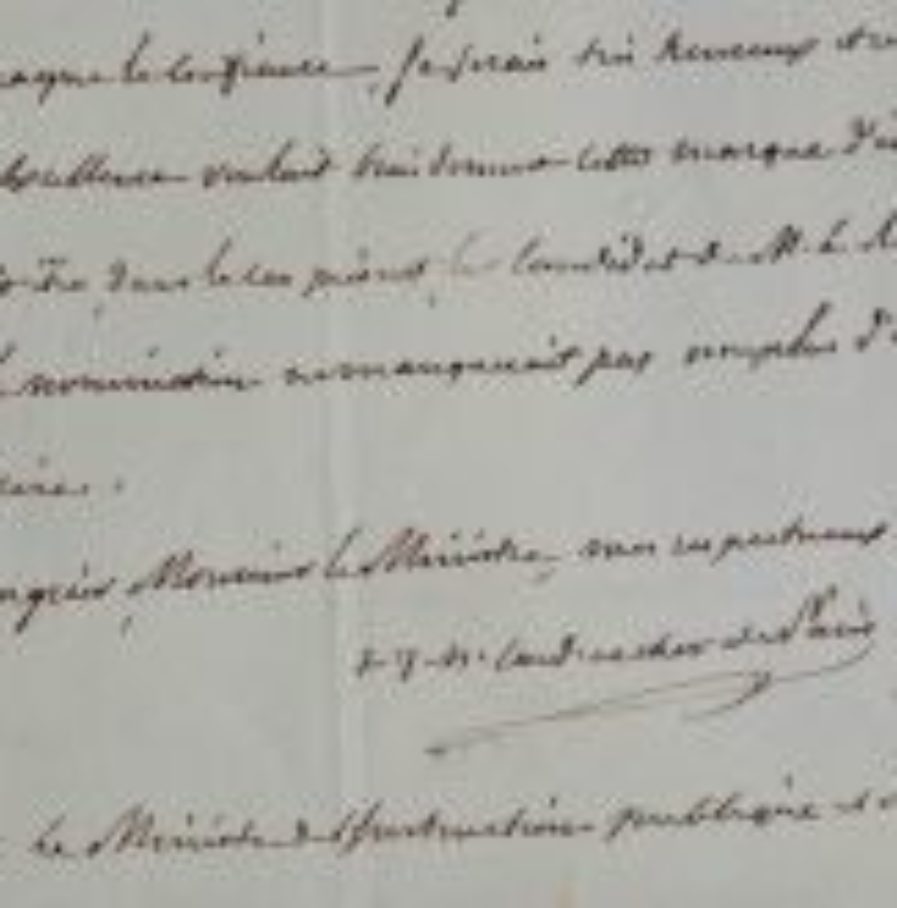 confiance, Je serais très heureux
Excellence voulait bien donner cette marque
dans le cas présent, le Candidat de M. le
nomination ne manquerait pas non plus d'

Monsieur le Ministre, mes respectueux
Card. archev de Paris
le Ministre de l'Instruction publique et